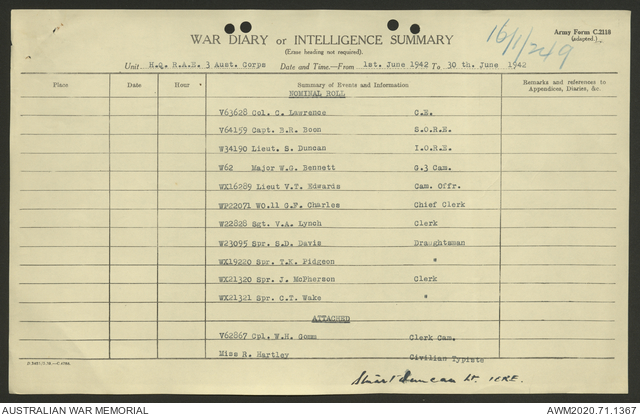 WAR DIARY or INTELLIGENCE SUMMARY
(Erase heading not required).
Army Form C.2118
(adapted).
16/1/249
Unit H.Q. R.A.E. 3 Aust. Corps Date and Time.—From 1st. June 1942 To 30 th. June 1942
Place Date Hour Summary of Events and Information Remarks and references to Appendices, Diaries, &c.
NOMINAL ROLL
V63628 Col. C. Lawrence C.E.
V64159 Capt. B.R. Boon S.O.R.E.
W34190 Lieut. S. Duncan I.O.R.E.
W62 Major W.G. Bennett G.3 Cam.
WX16289 Lieut V.T. Edwards Cam. Offr.
WP22071 WO.11 G.F. Charles Chief Clerk
W22828 Sgt. V.A. Lynch Clerk
W23095 Spr. S.D. Davis Draughtsman
WX19220 Spr. T.K. Pidgeon "
WX21320 Spr. J. McPherson Clerk
WX21321 Spr. C.T. Wake "
ATTACHED
V62867 Cpl. W.H. Gomm Clerk Cam.
Miss R. Hartley Civilian Typiste
Stuart Duncan Lt. IORE.
AUSTRALIAN WAR MEMORIAL AWM2020.71.1367